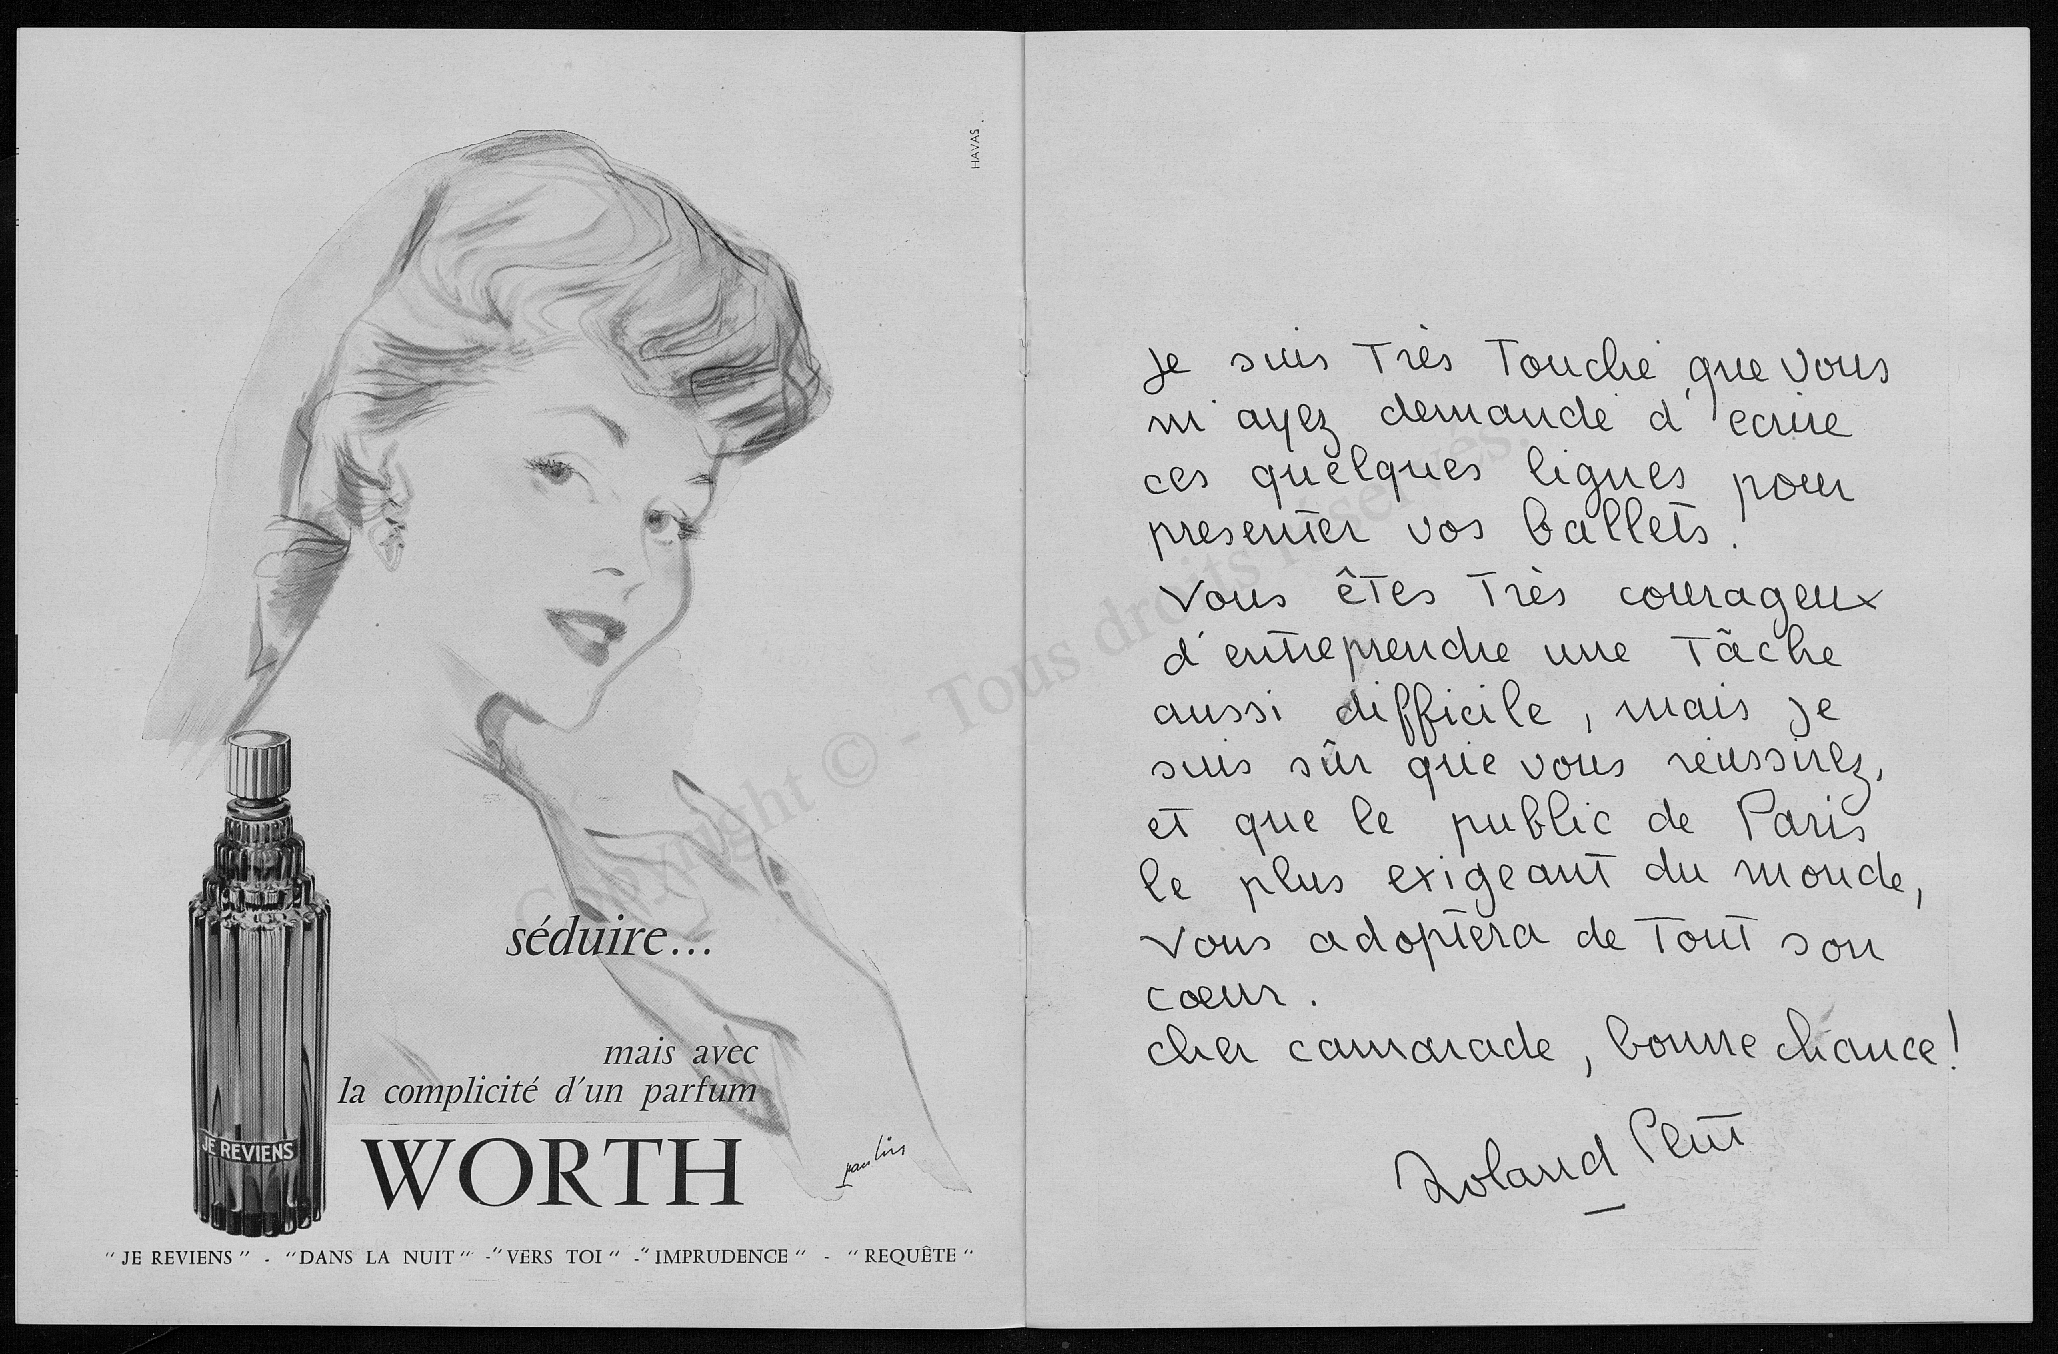 HAVAS.
séduire...
mais avec
la complicité d'un parfum
WORTH
JE REVIENS
paulin
"JE REVIENS" - "DANS LA NUIT" - "VERS TOI" - "IMPRUDENCE" - "REQUÊTE"
Je suis très touché que vous
m'ayez demandé d'écrire
ces quelques lignes pour
présenter vos ballets.
Vous êtes très courageux
d'entreprendre une tâche
aussi difficile, mais je
suis sûr que vous réussirez,
et que le public de Paris
le plus exigeant du monde,
vous adoptera de tout son
cœur.
cher camarade, bonne chance !
Roland Petit
Copyright © - Tous droits réservés.